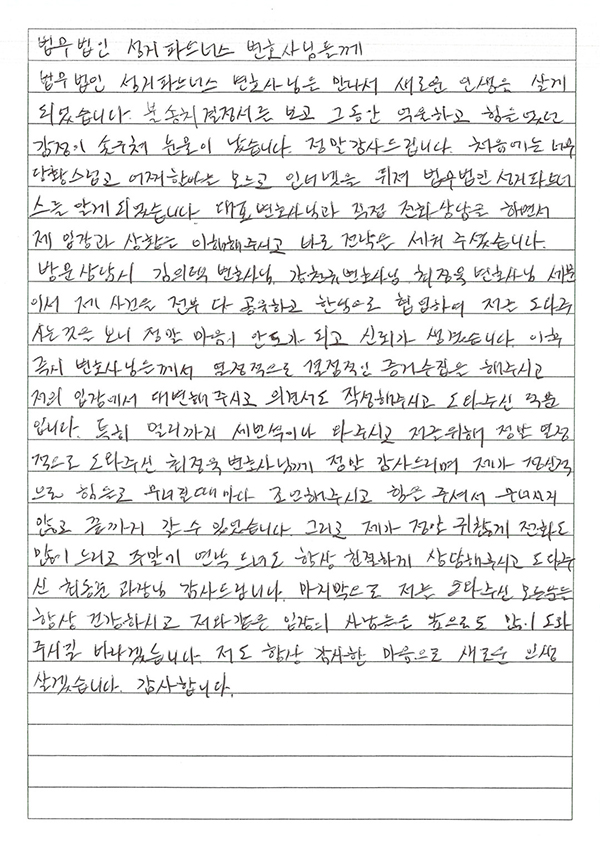 법무법인 성지파트너스 변호사님들께
법무법인 성지파트너스 변호사님을 만나서 새로운 인생을 살게
되었습니다. 불송치결정서를 보고 그동안 억울하고 힘들었던
감정이 솟구쳐 눈물이 났습니다. 정말 감사드립니다. 처음에는 너무
당황스럽고 어찌할바를 모르고 인터넷을 뒤져 법무법인 성지파트너
스를 알게 되었습니다. 대표변호사님과 직접 전화상담을 하면서
제 입장과 상황을 이해해주시고 바로 전략을 세워 주셨습니다.
방문상담시 김의택 변호사님, 강천규변호사님, 최정욱 변호사님 세분
이서 제 사건을 전부 다 공유하고 한팀으로 협업하여 저를 도와주
시는것을 보니 정말 마음이 안도가 되고 신뢰가 생겼습니다. 이후
즉시 변호사님들께서 열정적으로 결정적인 증거수집을 해주시고
저의 입장에서 대변해주시고 의견서도 작성해주시고 도와주신 덕분
입니다. 특히 멀리까지 세번씩이나 와주시고 저를위해 정말 열정
적으로 도와주신 최정욱변호사님께 정말 감사드리며 제가 정신적
으로 힘들고 무너질때마다 조언해주시고 힘을 주셔서 무너지지
않고 끝까지 갈 수 있었습니다. 그리고 제가 정말 귀찮게 전화도
많이 드리고 주말에 연락 드려도 항상 친절하게 상담해주시고 도와주
신 최동훈 과장님 감사드립니다. 마지막으로 저를 도와주신 모든분들
항상 건강하시고 저와같은 입장의 사람들을 앞으로도 많이 도와
주시길 바라겠습니다. 저도 항상 감사한 마음으로 새로운 인생
살겠습니다. 감사합니다.